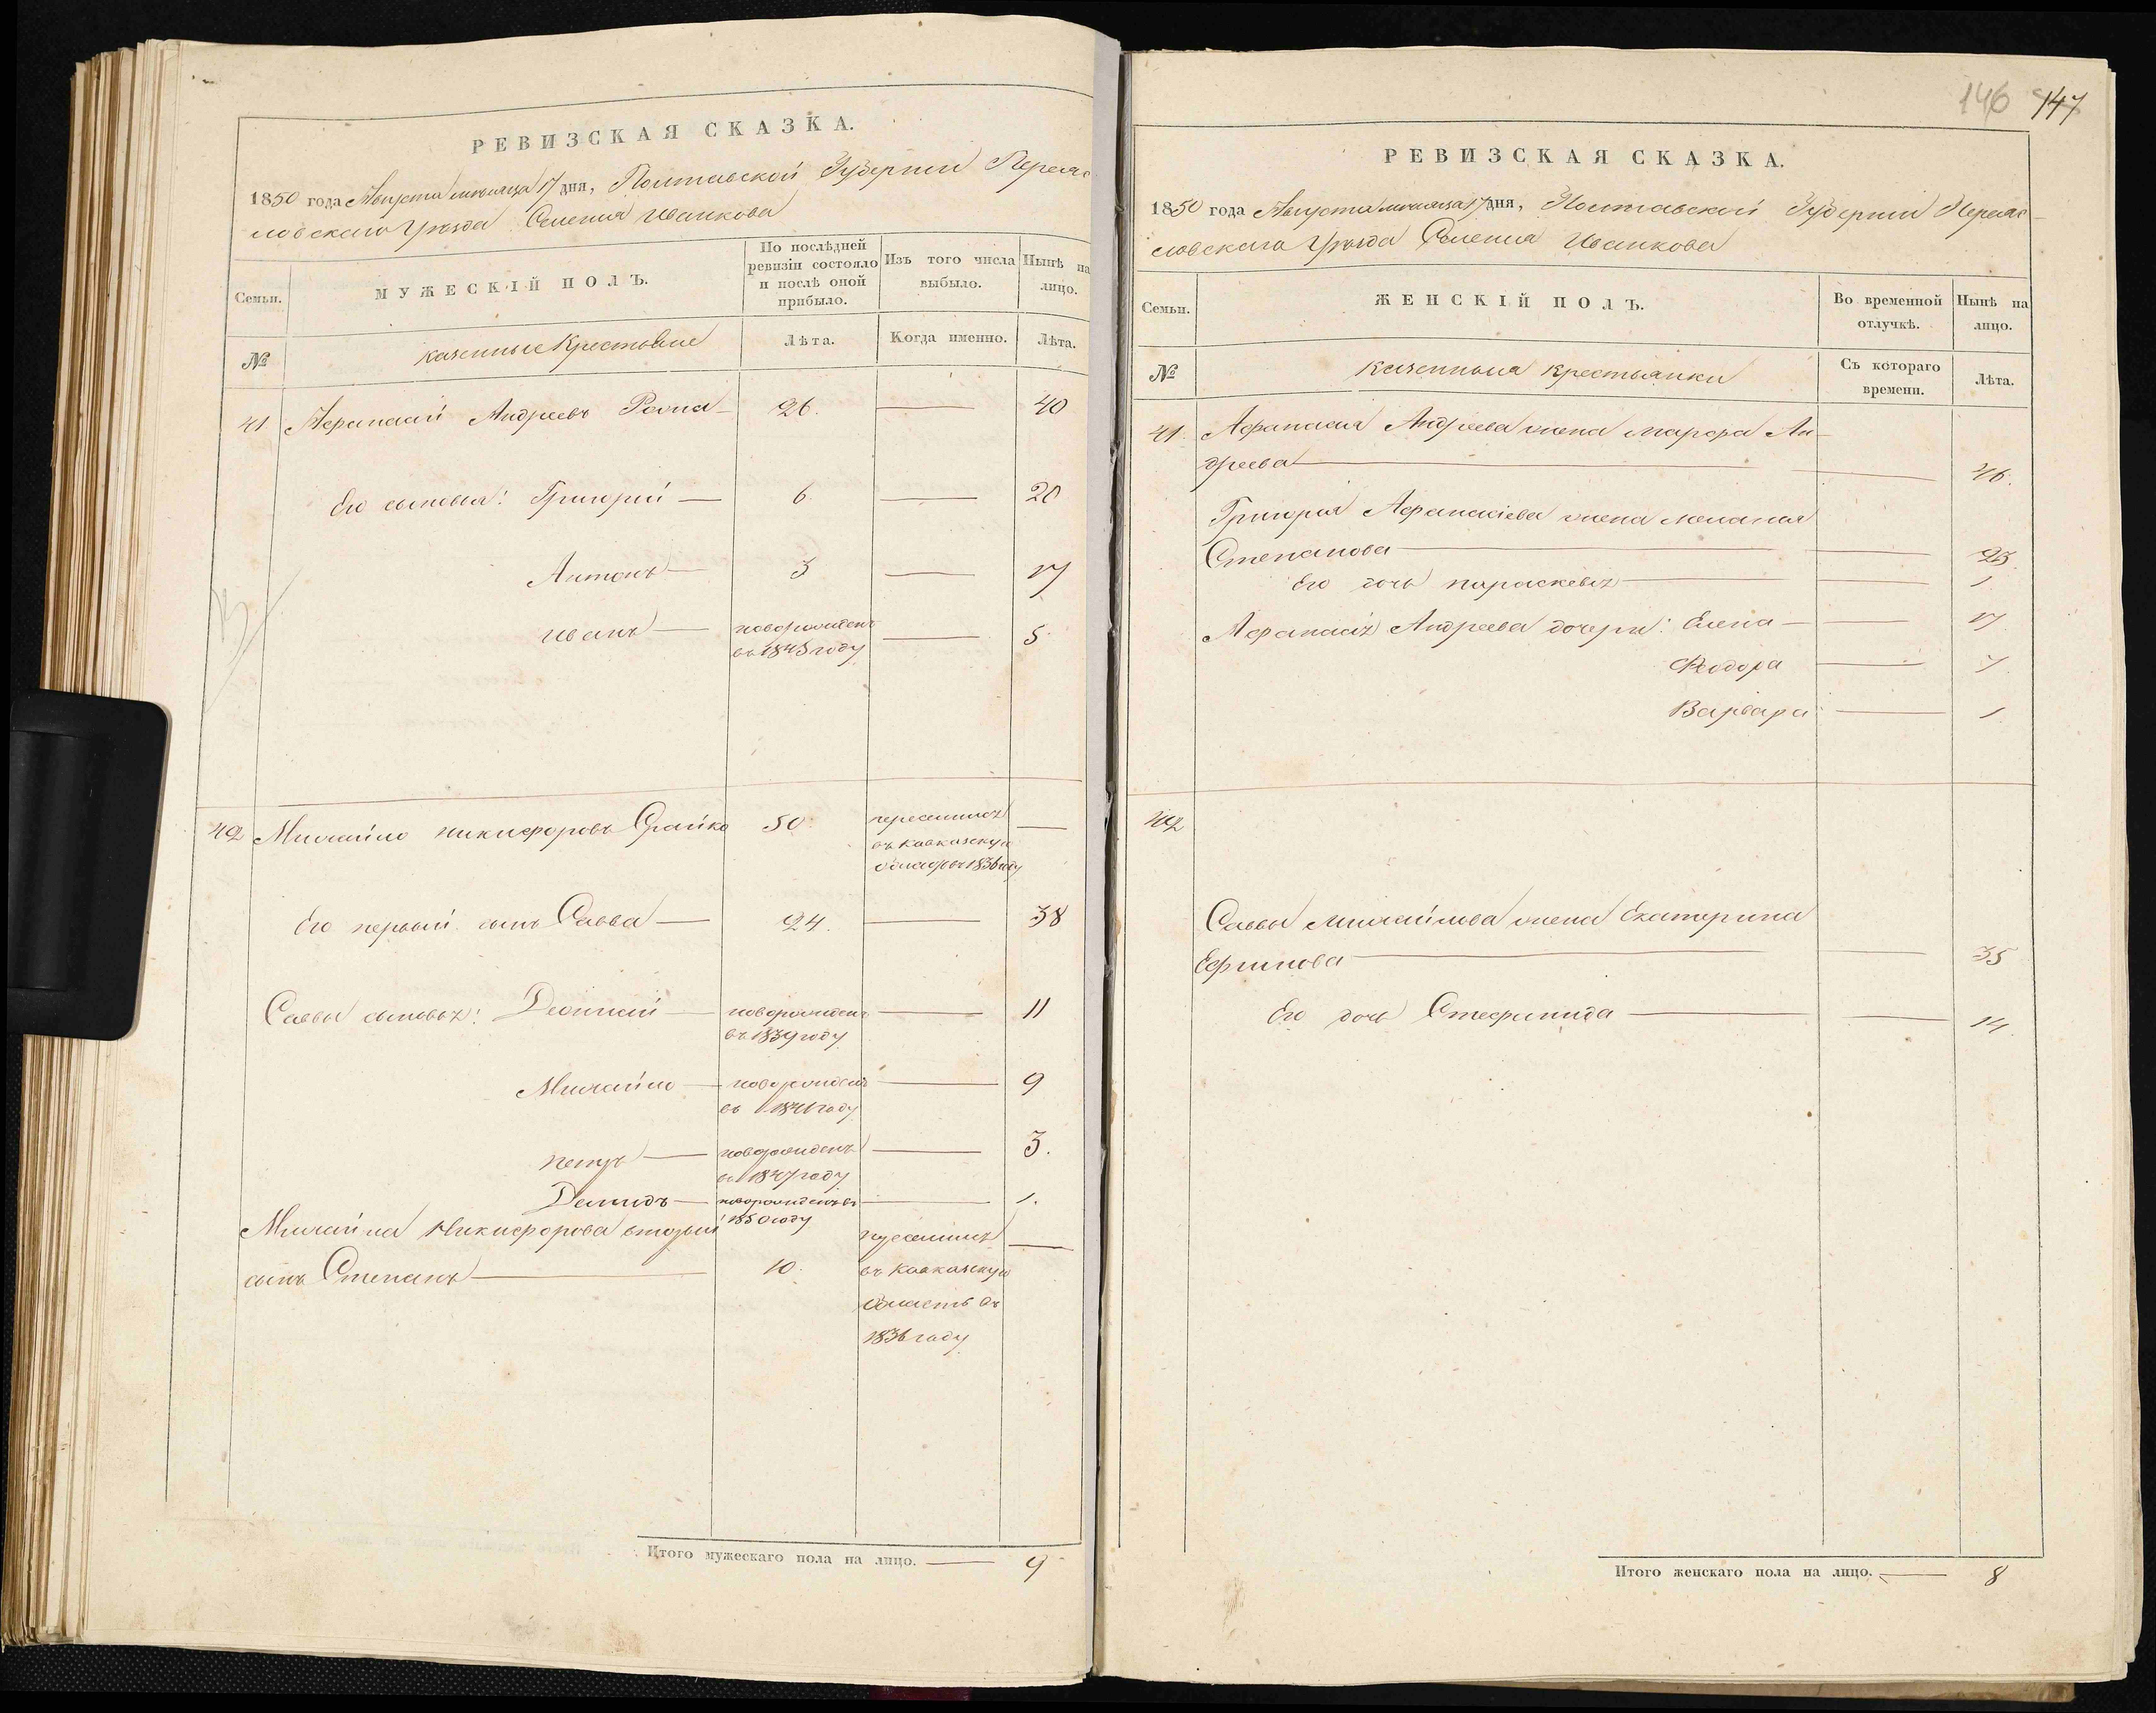 РЕВИЗСКАЯ СКАЗКА.
1850 года Августа месяца 17 дня, Полтавской Губернии Переяс
ловскаго Уезда Селения Иванкова
Семьи.
МУЖЕСКІЙ ПОЛЪ.
По послѣдней ревизіи состояло и послѣ оной прибыло.
Изъ того числа выбыло.
Нынѣ на лицо.
№
казенные Крестьяне
Лѣта.
Когда именно.
Лѣта.
41 Афанасий Андреевъ 26. — 40
Его сыновья: Григорий — 6 — 20
Антонъ — 3 — 17
Иванъ — новорожденъ — 5
въ 1845 году
42 Михайло Никифоровъ 50 переселился —
въ Кавказскую
область въ 1836 году
Его первый сынъ Савва — 24. — 38
Саввы сыновья: — новорожденъ — 11
въ 1839 году
Михайло — новорожденъ — 9
въ 1841 году
Петръ — новорожденъ — 3.
въ 1847 году
Демидъ — новорожденъ въ — 1.
1850 году
Михайла Никифорова вторый переселился —
сынъ Степанъ — 10. въ Кавказскую
область въ
1836 году
Итого мужескаго пола на лицо. — 9
146 147
РЕВИЗСКАЯ СКАЗКА.
1850 года Августа месяца 17 дня, Полтавской Губернии Переяс
ловскаго Уезда Селения Иванкова
Семьи.
ЖЕНСКІЙ ПОЛЪ.
Во временной отлучкѣ.
Нынѣ на лицо.
№
Казенныя крестьянки
Съ котораго времени.
Лѣта.
41. Афанасия Андреева жена Марфа Ан-
дреева — — 46.
Григория Афанасіева жена Мелания
Степанова — — 23
Его дочь Параскевия — — 1
Афанасия Андреева дочери: Елена — — 17
Феодора — 7
Варвара — 1
42
Саввы Михайлова жена Екатерина
Ефимова — — 35
Его дочь Стефанида — — 14
Итого женскаго пола на лицо. — 8